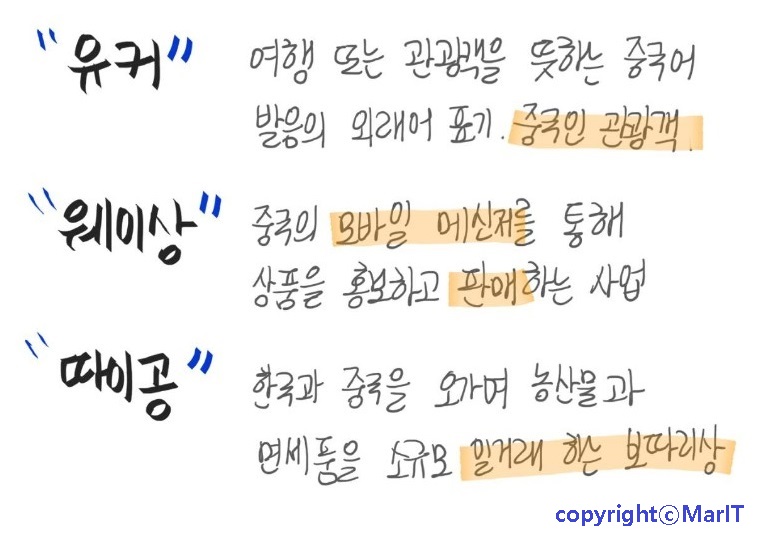 "유커" 여행 또는 관광객을 뜻하는 중국어
발음의 외래어 표기. 중국인 관광객.
"웨이상" 중국의 모바일 메신저를 통해
상품을 홍보하고 판매하는 사업
"따이공" 한국과 중국을 오가며 농산물과
면세품을 소규모 밀거래 하는 보따리상
copyrightⓒMarIT